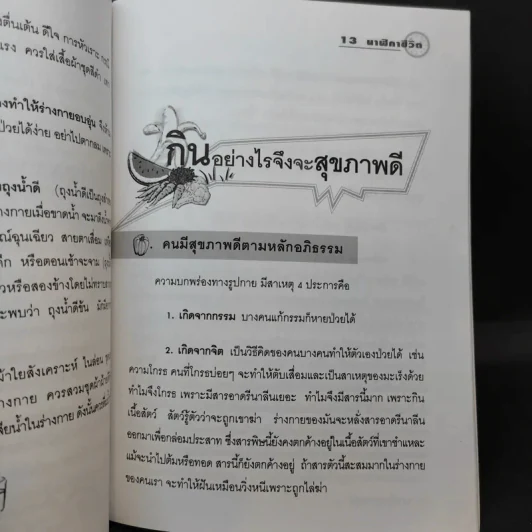 ตื่นเต้น ดีใจ การหัวเราะ
แรง ควรใส่เสื้อผ้าชุดสีดำ
ทำให้ร่างกายอบอุ่น
ป่วยได้ง่าย อย่าไปตากลม
ถุงน้ำดี (ถุงน้ำดีเป็นถุง
ร่างกายเมื่อขาดน้ำ จะมาดึงน้ำ
ณ์ฉุนเฉียว สายตาเสื่อม
หรือตอนเช้าจะจาม
วหรือสองข้างโดยไม่ทราบ
ะพบว่า ถุงน้ำดีข้น มักมี
ผ้าใยสังเคราะห์ ในล่อน
างกาย ควรสวมชุดผ้าฝ้าย
สียน้ำในร่างกาย ดังนั้นควร
13 นาฬิกาชีวิต
กินอย่างไรจึงจะสุขภาพดี
คนมีสุขภาพดีตามหลักอภิธรรม
ความบกพร่องทางรูปกาย มีสาเหตุ 4 ประการคือ
1. เกิดจากกรรม บางคนแก้กรรมก็หายป่วยได้
2. เกิดจากจิต เป็นวิธีคิดของคนบางคนทำให้ตัวเองป่วยได้ เช่น
ความโกรธ คนที่โกรธบ่อยๆ จะทำให้ตับเสื่อมและเป็นสาเหตุของมะเร็งด้วย
ทำไมจึงโกรธ เพราะมีสารอาดรีนาลีนเยอะ ทำไมจึงมีสารนี้มาก เพราะกิน
เนื้อสัตว์ สัตว์รู้ตัวว่าจะถูกเขาฆ่า ร่างกายของมันจะหลั่งสารอาดรีนาลีน
ออกมาเพื่อกล่อมประสาท ซึ่งสารพิษนี้ยังคงตกค้างอยู่ในเนื้อสัตว์ที่เขาชำแหละ
แม้จะนำไปต้มหรือทอด สารนี้ก็ยังตกค้างอยู่ ถ้าสารตัวนี้สะสมมากในร่างกาย
ของคนเรา จะทำให้ฝันเหมือนวิ่งหนีเพราะถูกไล่ฆ่า